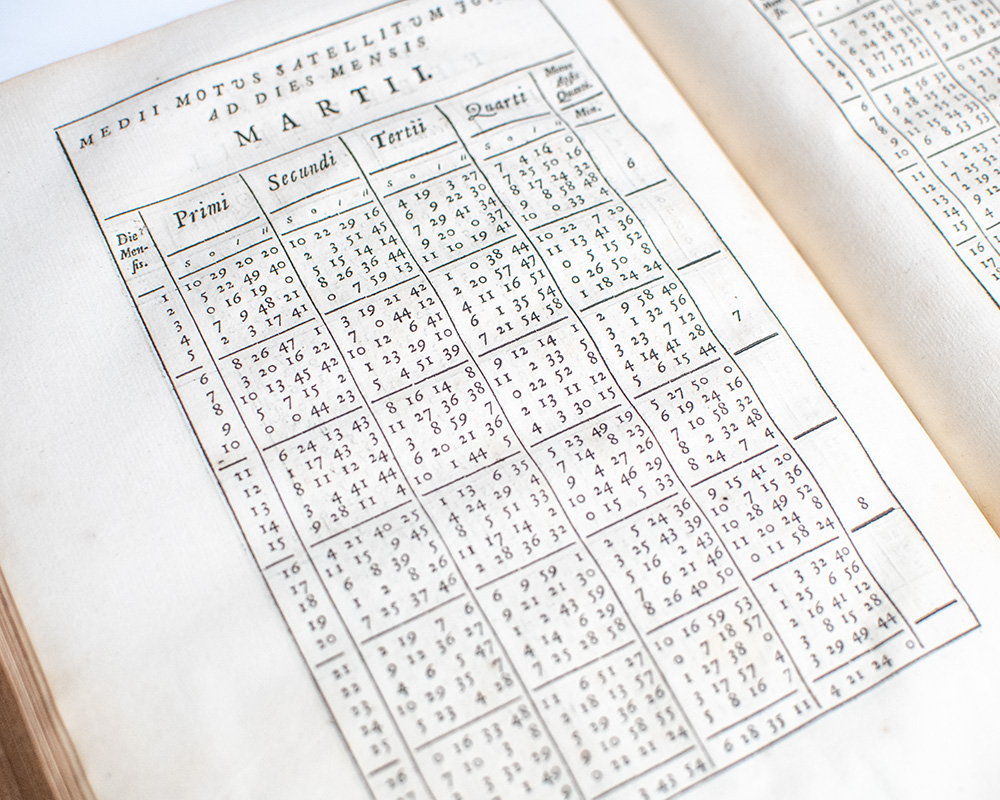 MEDII MOTUS SATELLITUM
AD DIES MENSIS
MARTII.
Dies Men- sis. Primi Secundi Tertii Quarti Motus Apsis Quarti.
s o ı ıı s o ı ıı s o ı ıı s o ı ıı Men.
1 10 29 20 20 10 22 29 16 4 19 3 27 7 4 16 0
2 5 22 49 40 2 3 51 45 6 9 22 30 7 25 50 16
3 0 16 19 0 5 15 14 14 7 29 41 34 8 17 24 32 6
4 7 9 48 21 8 26 36 44 9 20 0 37 9 8 58 48
5 2 3 17 41 0 7 59 13 11 10 19 41 10 0 33 4
6 8 26 47 1 3 19 21 42 1 0 38 44 10 22 7 20
7 3 20 16 22 7 0 44 12 2 20 57 47 11 13 41 36
8 10 13 45 42 10 12 6 41 4 11 16 51 0 5 15 52
9 5 7 15 2 1 23 29 10 6 1 35 54 0 26 50 8
10 0 0 44 23 5 4 51 39 7 21 54 58 1 18 24 24
11 6 24 13 43 8 16 14 8 9 12 14 1 2 9 58 40
12 1 17 43 3 11 27 36 38 11 2 33 5 3 1 32 56
13 8 11 12 24 3 8 59 7 0 22 52 8 3 23 7 12 7
14 3 4 41 44 6 20 21 36 2 13 11 12 4 14 41 28
15 9 28 11 4 10 1 44 5 4 3 30 15 5 6 15 44
16 4 21 40 25 1 13 6 35 5 23 49 19 5 27 50 0
17 11 15 9 45 4 24 29 4 7 14 8 23 6 19 24 16
18 6 8 39 5 8 5 51 33 9 4 27 26 7 10 58 32
19 1 2 8 26 11 17 14 2 10 24 46 29 8 2 32 48
20 7 25 37 46 2 28 36 32 0 15 5 33 8 24 7 4
21 2 19 7 6 6 9 59 1 2 5 24 36 9 15 41 20
22 9 12 36 27 9 21 21 30 3 25 43 39 10 7 15 36
23 4 6 5 47 1 2 43 59 5 16 2 43 10 28 49 52 8
24 10 29 35 7 4 14 6 29 7 6 21 46 11 20 24 8
25 5 23 4 28 7 25 28 58 8 26 40 50 0 11 58 24
26 0 16 33 48 11 6 51 27 10 16 59 53 1 3 32 40
7 10 3 8 2 18 13 57 0 7 18 57 1 25 6 56
3 32 29 5 29 36 26 1 27 38 0 2 16 41 12
49 9 10 58 55 3 17 57 4 3 8 15 28
0 22 21 24 5 8 16 7 3 29 49 44
3 43 54 6 28 35 11 4 21 24 0